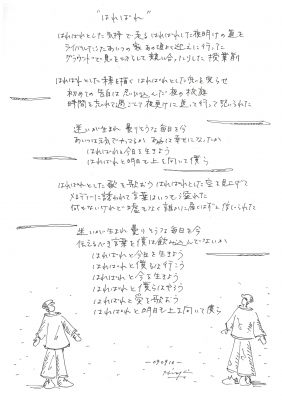 "はればれ"
はればれとした気持で走る はればれした夜明けの道を
ライバルだったあいつの家 あの頃より迎えに行った
グラウンドで息をきらして 競い合ったりした 授業前
はればれとした様を描く はればれとした花を咲かせ
初めての告白は 思い込んだ 夜の校庭
時間を忘れて過ごして 夜更けに 走って行って 怒られた
迷いが生まれ 曇りそうな毎日を今
あいつは元気でやってるか あの子は幸せになったか
はればれと今日を生きよう
はればれと明日を 上を向いて 僕ら
はればれとした歌を歌おう はればれとした空を見上げて
メロディーに誘われて 言葉はいつも溢れた
何もないけれど 嘘もなく 誰かに届くはずと信じられた
迷いが生まれ 曇りそうな毎日を今
伝えるべき言葉を僕は飲み込んでないか
はればれと今日を生きよう
はればれと僕らは行こう
はればれと今日を生きよう
はればれと僕らはやろう
はればれと愛を歌おう
はればれと明日を 上を向いて 僕ら